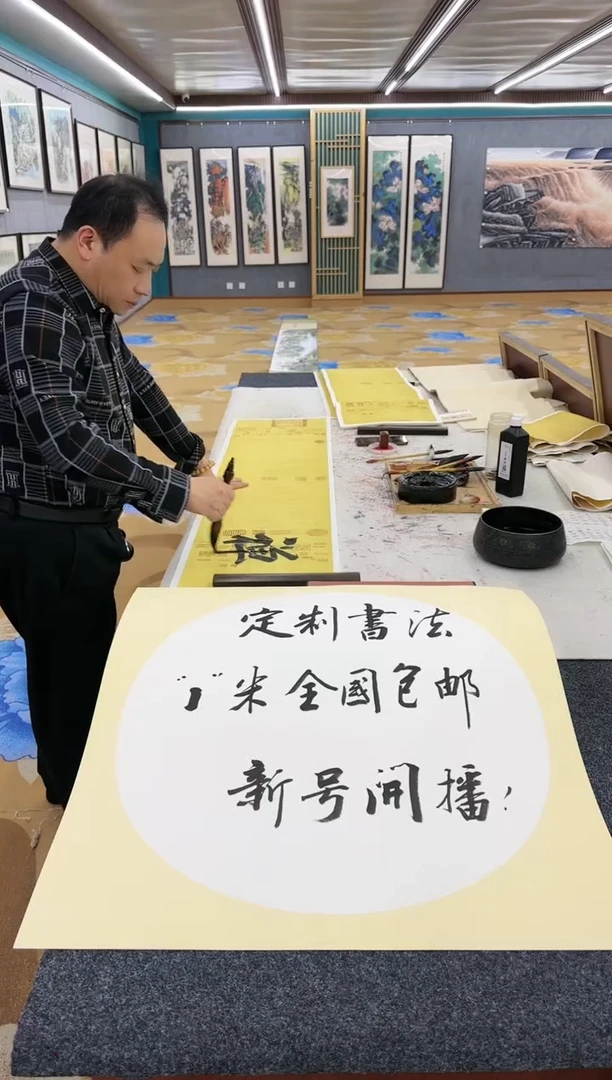 定制書法
"1"米全國包邮
新号開播!